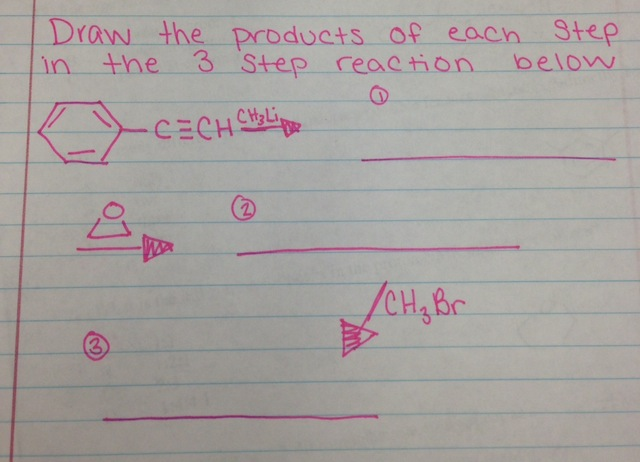 Draw the products of each step
in the 3 step reaction below
①
C≡CH CH₃Li
O
②
CH₃Br
③